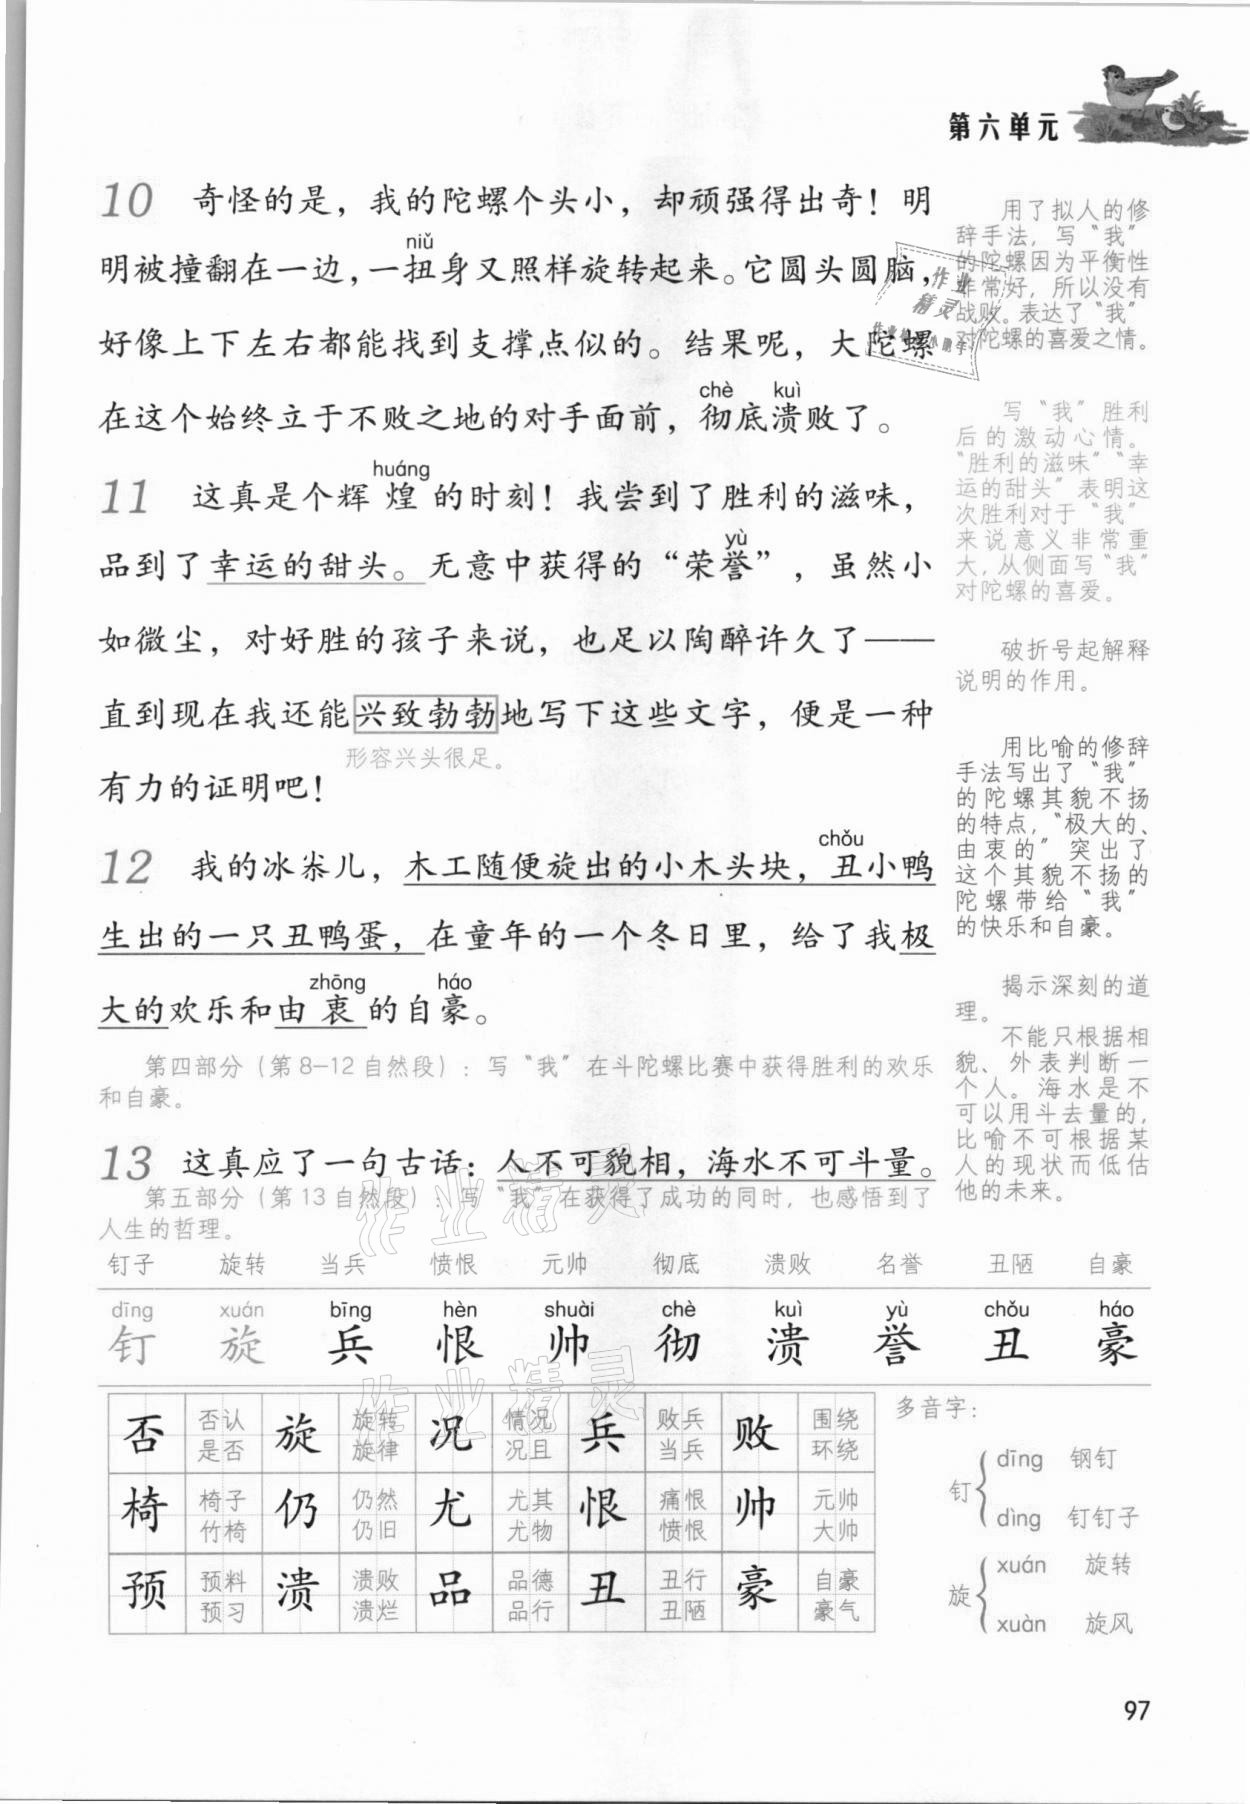 第六单元
10 奇怪的是，我的陀螺个头小，却顽强得出奇！明
niǔ
明被撞翻在一边，一扭身又照样旋转起来。它圆头圆脑，
好像上下左右都能找到支撑点似的。结果呢，大陀螺
chè kuì
在这个始终立于不败之地的对手面前，彻底溃败了。
huáng
11 这真是个辉煌的时刻！我尝到了胜利的滋味，
yù
品到了幸运的甜头。无意中获得的“荣誉”，虽然小
如微尘，对好胜的孩子来说，也足以陶醉许久了——
直到现在我还能兴致勃勃地写下这些文字，便是一种
形容兴头很足。
有力的证明吧！
chǒu
12 我的冰尜儿，木工随便旋出的小木头块，丑小鸭
生出的一只丑鸭蛋，在童年的一个冬日里，给了我极
zhōng háo
大的欢乐和由衷的自豪。
第四部分（第8-12自然段）：写“我”在斗陀螺比赛中获得胜利的欢乐
和自豪。
13 这真应了一句古话：人不可貌相，海水不可斗量。
第五部分（第13自然段）：写“我”在获得了成功的同时，也感悟到了
人生的哲理。
用了拟人的修
辞手法，写“我”
的陀螺因为平衡性
非常好，所以没有
战败。表达了“我”
对陀螺的喜爱之情。
写“我”胜利
后的激动心情。
“胜利的滋味”“幸
运的甜头”表明这
次胜利对于“我”
来说意义非常重
大，从侧面写“我”
对陀螺的喜爱。
破折号起解释
说明的作用。
用比喻的修辞
手法写出了“我”
的陀螺其貌不扬
的特点，“极大的、
由衷的”突出了
这个其貌不扬的
陀螺带给“我”
的快乐和自豪。
揭示深刻的道
理。
不能只根据相
貌、外表判断一
个人。海水是不
可以用斗去量的，
比喻不可根据某
人的现状而低估
他的未来。
钉子 旋转 当兵 愤恨 元帅 彻底 溃败 名誉 丑陋 自豪
dīng xuán bīng hèn shuài chè kuì yù chǒu háo
钉 旋 兵 恨 帅 彻 溃 誉 丑 豪
否 否认 旋 旋转 况 情况 兵 败兵 败 围绕
是否 旋律 况且 当兵 环绕
椅 椅子 仍 仍然 尤 尤其 恨 痛恨 帅 元帅
竹椅 仍旧 尤物 愤恨 大帅
预 预料 溃 溃败 品 品德 丑 丑行 豪 自豪
预习 溃烂 品行 丑陋 豪气
多音字：
dīng 钢钉
钉
dìng 钉钉子
xuán 旋转
旋
xuàn 旋风
97
作业
精灵
作业精灵
作业精灵